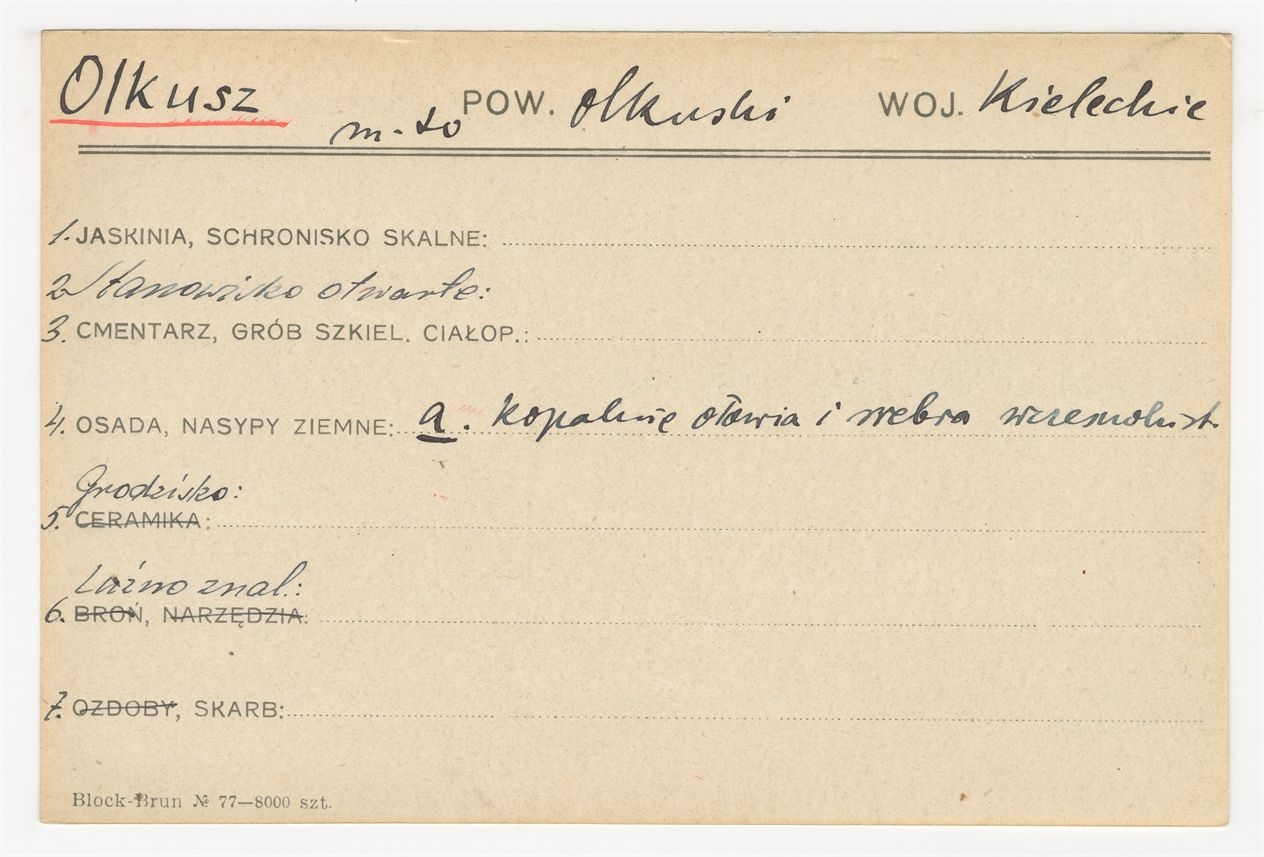 Olkusz m-to POW. olkuski WOJ. Kieleckie
1. JASKINIA, SCHRONISKO SKALNE:
2. Stanowisko otwarte:
3. CMENTARZ, GRÓB SZKIEL. CIAŁOP.:
4. OSADA, NASYPY ZIEMNE: a. kopalnie ołowia i srebra wczesnohist.
Grodzisko:
5. CERAMIKA:
Luźno znal.:
6. BROŃ, NARZĘDZIA:
7. OZDOBY, SKARB:
Block-Brun № 77—8000 szt.